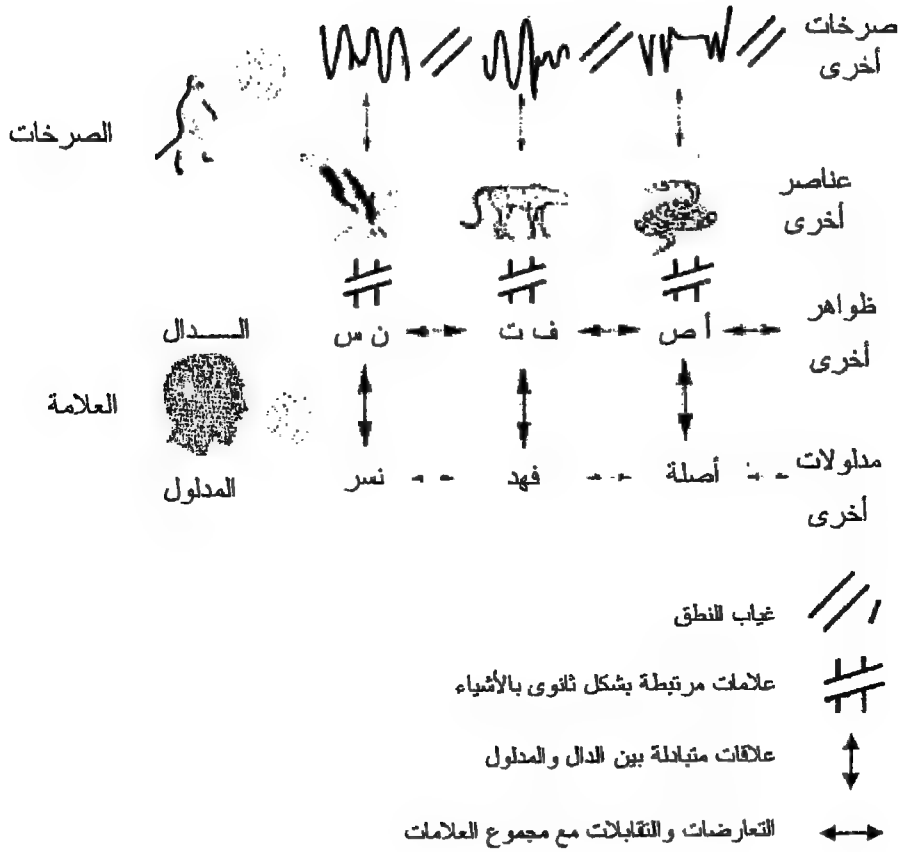 صرخات
أخرى
الصرخات
عناصر
أخرى
ظواهر
أخرى
أ ص
ف ت
ن س
الـــــدال
العلامة
مدلولات
أخرى
أصلة
فهد
نسر
المدلول
غياب للنطق
علامات مرتبطة بشكل ثانوى بالأشياء
علاقات متبادلة بين الدال والمدلول
التعارضات والتقابلات مع مجموع العلامات